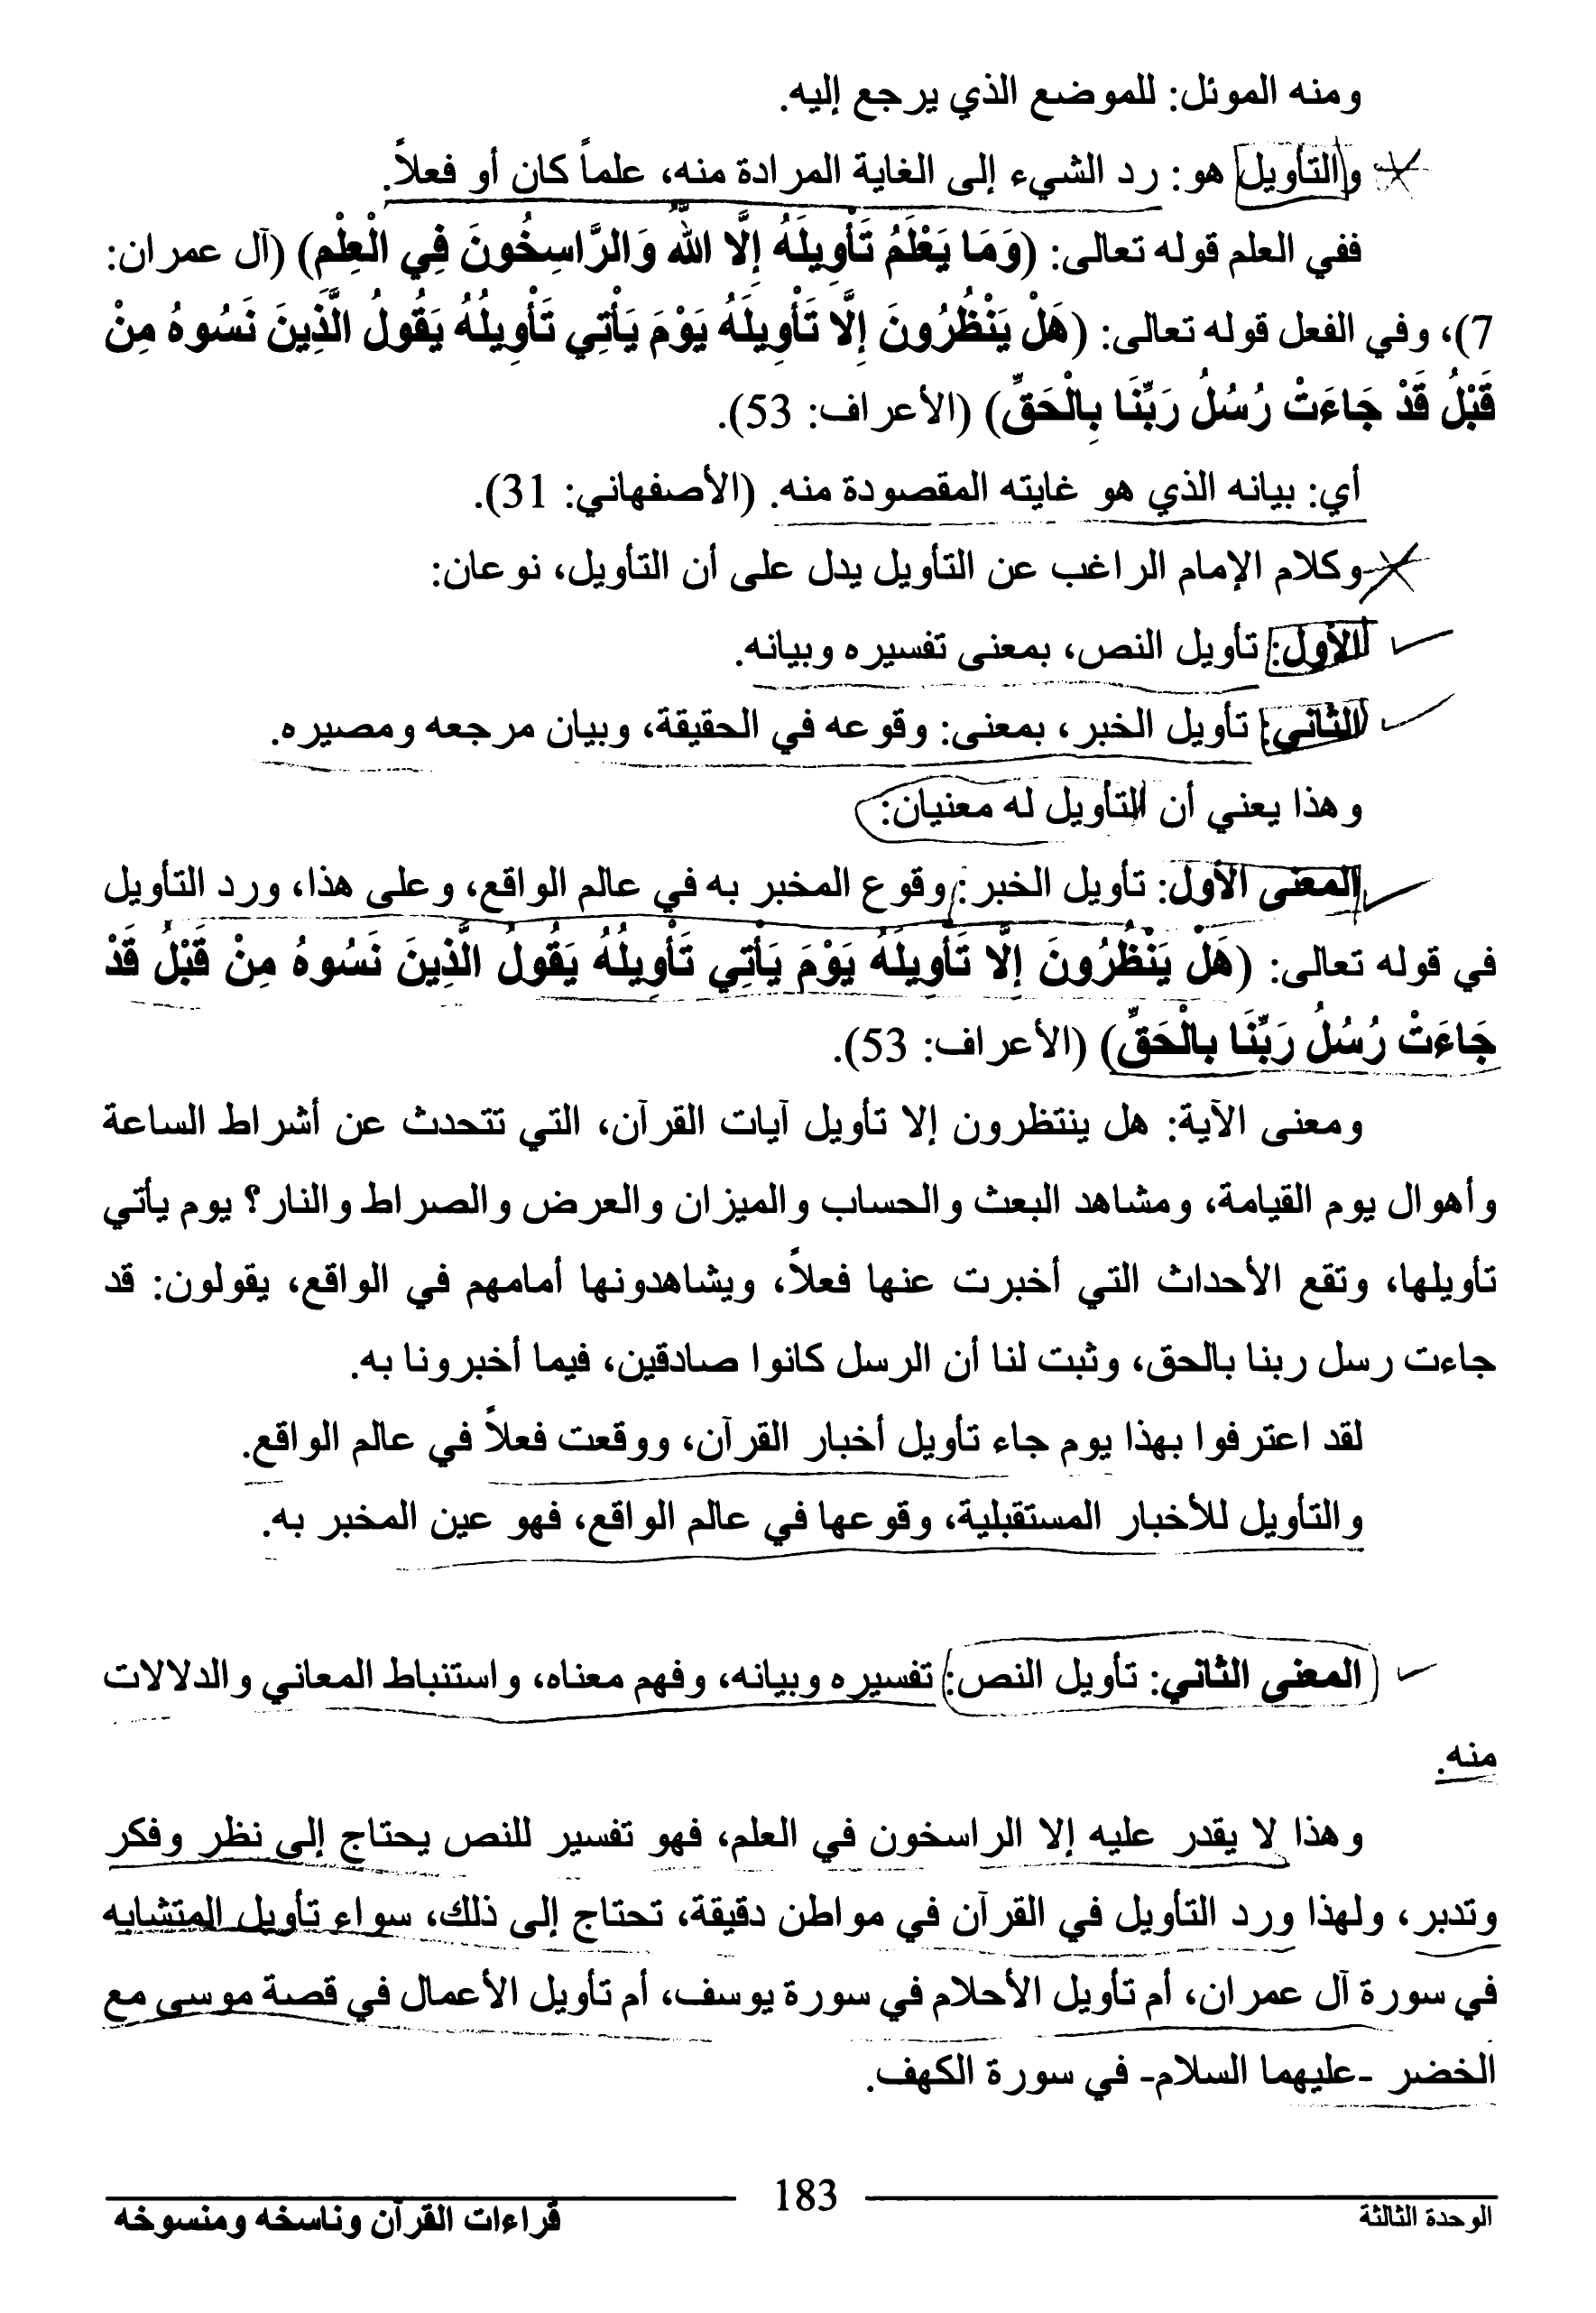 ومنه الموئل: للموضع الذي يرجع إليه.
والتأويل هو: رد الشيء إلى الغاية المرادة منه، علماً كان أو فعلاً.
ففي العلم قوله تعالى: (وَمَا يَعْلَمُ تَأْوِيلَهُ إِلَّا اللهُ وَالرَّاسِخُونَ فِي الْعِلْمِ) (آل عمران:
7)، وفي الفعل قوله تعالى: (هَلْ يَنْظُرُونَ إِلَّا تَأْوِيلَهُ يَوْمَ يَأْتِي تَأْوِيلُهُ يَقُولُ الَّذِينَ نَسُوهُ مِنْ
قَبْلُ قَدْ جَاءَتْ رُسُلُ رَبِّنَا بِالْحَقِّ) (الأعراف: 53).
أي: بيانه الذي هو غايته المقصودة منه. (الأصفهاني: 31).
وكلام الإمام الراغب عن التأويل يدل على أن التأويل، نوعان:
الأول: تأويل النص، بمعنى تفسيره وبيانه.
الثاني: تأويل الخبر، بمعنى: وقوعه في الحقيقة، وبيان مرجعه ومصيره.
وهذا يعني أن التأويل له معنيان:
المعنى الأول: تأويل الخبر: وقوع المخبر به في عالم الواقع، وعلى هذا، ورد التأويل
في قوله تعالى: (هَلْ يَنْظُرُونَ إِلَّا تَأْوِيلَهُ يَوْمَ يَأْتِي تَأْوِيلُهُ يَقُولُ الَّذِينَ نَسُوهُ مِنْ قَبْلُ قَدْ
جَاءَتْ رُسُلُ رَبِّنَا بِالْحَقِّ) (الأعراف: 53).
ومعنى الآية: هل ينتظرون إلا تأويل آيات القرآن، التي تتحدث عن أشراط الساعة
وأهوال يوم القيامة، ومشاهد البعث والحساب والميزان والعرض والصراط والنار؟ يوم يأتي
تأويلها، وتقع الأحداث التي أخبرت عنها فعلاً، ويشاهدونها أمامهم في الواقع، يقولون: قد
جاءت رسل ربنا بالحق، وثبت لنا أن الرسل كانوا صادقين، فيما أخبرونا به.
لقد اعترفوا بهذا يوم جاء تأويل أخبار القرآن، ووقعت فعلاً في عالم الواقع.
والتأويل للأخبار المستقبلية، وقوعها في عالم الواقع، فهو عين المخبر به.
المعنى الثاني: تأويل النص: تفسيره وبيانه، وفهم معناه، واستنباط المعاني والدلالات
منه.
وهذا لا يقدر عليه إلا الراسخون في العلم، فهو تفسير للنص يحتاج إلى نظر وفكر
وتدبر، ولهذا ورد التأويل في القرآن في مواطن دقيقة، تحتاج إلى ذلك، سواء تأويل المتشابه
في سورة آل عمران، أم تأويل الأحلام في سورة يوسف، أم تأويل الأعمال في قصة موسى مع
الخضر -عليهما السلام- في سورة الكهف.
الوحدة الثالثة 183 قراءات القرآن وناسخه ومنسوخه